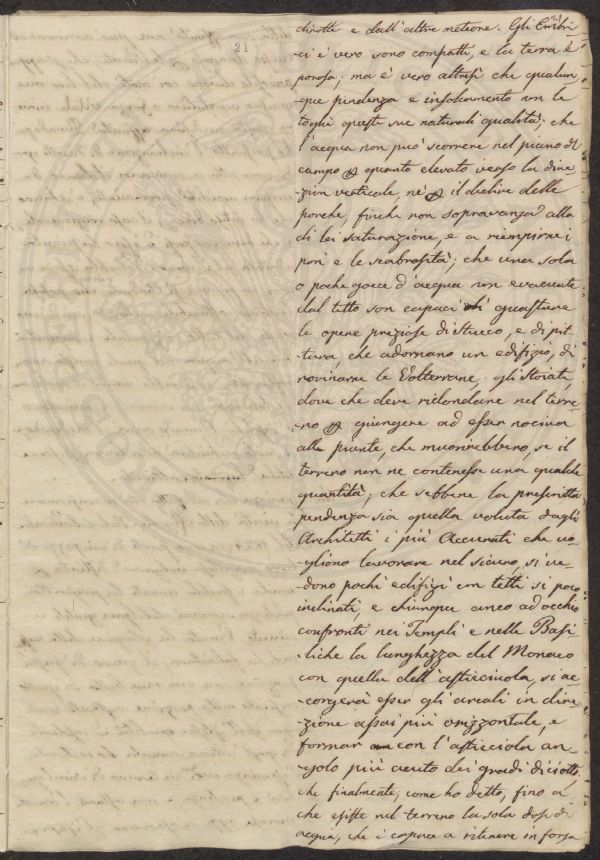 21
dirotte e dall'altre meteore. Gli Embri-
ci è vero sono compatti, e la terra è
porosa; ma è vero altresì che qualun-
que pendenza e insolcamento non le
toglie queste sue naturali qualità; che
l'acqua non può scorrere nel piano di
campo quanto elevato verso la dire-
zion verticale, nè il declive delle
porche, finche non sopravanza alla
di lei saturazione, e a riempirne i
pori e le scabrosità; che una sola
o poche gocce d'acqua non evacuate
dal tetto son capaci di guastare
le opere preziose di stucco, e di pit-
tura, che adornano un edifizio, di
rovinarne le Volterrane, gli Stoiati,
dove che deve ritondare nel terre-
no giungere ad esser nociva
alle piante, che morirebbero, se il
terreno non ne contenesse una qualche
quantità; che sebbene la prescritta
pendenza sia quella voluta dagli
Architetti i più Accurati che vo-
gliono lavorare nel sicuro, si ve-
dono pochi edifizi con tetti sì poco
inclinati, e chiunque anco ad occhio
confronti nei Templi e nelle Basi-
liche la lunghezza del Monaco
con quella dell'asticciuola, si ac-
corgerà esser gli arcali in dire-
zione assai più orizzontale, e
formar con l'asticciola an-
golo più acuto dei gradi diciotto
che finalmente, come ho detto, fino a
che esiste nel terreno la sola dose di
acqua, che è capace a ritenere in forza